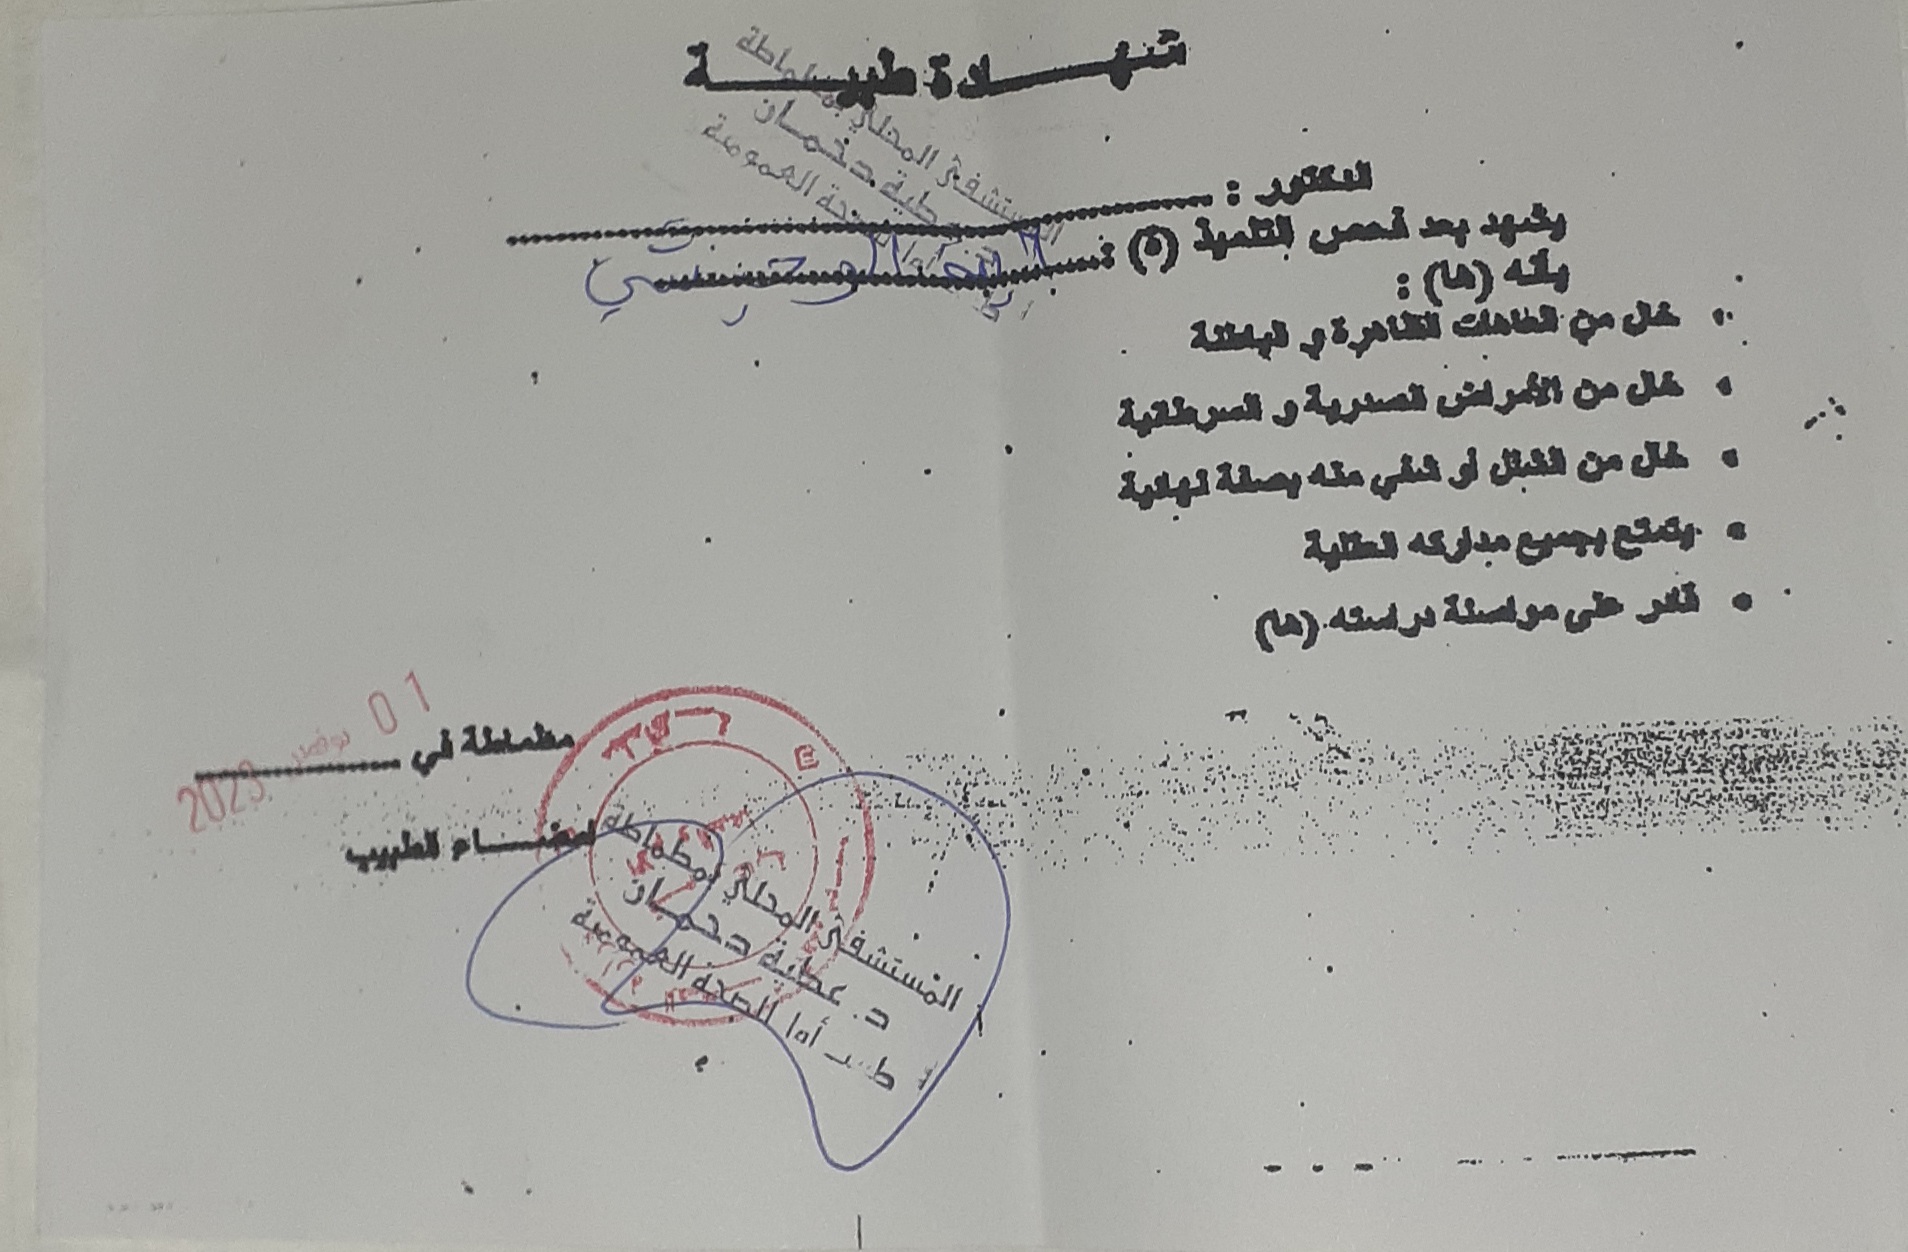 شهـــــادة طبيـــــة
المستشفى المحلي بمطماطة
د. عطية دخمان
الصحة العمومية
الدكتور : ........................................
يشهد بعد فحص التلميذ (ة)
بأنه (ها) :
• خال من العاهات الظاهرة و الباطنة
• خال من الأمراض الصدرية و السرطانية
• خال من الشلل أو شفي منه بصفة نهائية
• يتمتع بجميع مداركه العقلية
• قادر على مواصلة دراسته (ها)
مطماطة في ....................
01 نوفمبر 2023
امضـــــاء الطبيب
المستشفى المحلي بمطماطة
د. عطية دخمان
طبيب أول للصحة العمومية